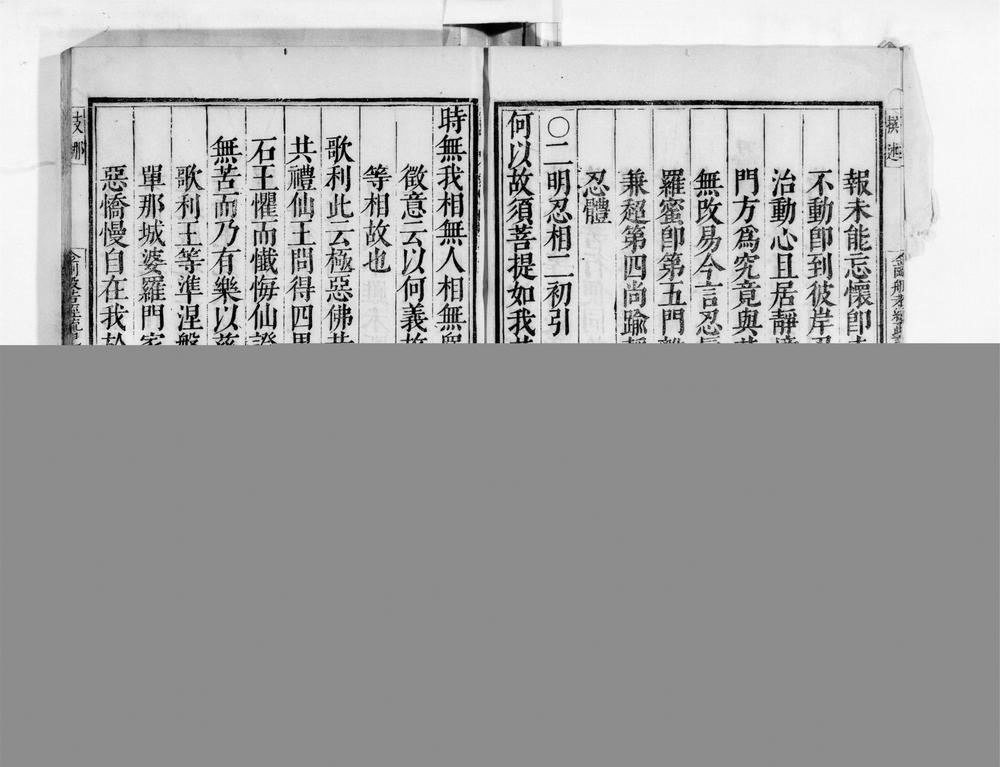 撰述
報未能忘懷卽
不動卽到彼岸忍
治動心且居靜
門方爲究竟與
無攺易今言忍
羅蜜卽第五門
兼超第四尚踰
忍體
○二明忍相二初引
何以故須菩提如我
時無我相無人相無
徵意云以何義故
等相故也
歌利此云極惡佛昔
共禮仙王問得四果
石王懼而懺悔仙證
無苦而乃有樂以慈
歌利王等準涅槃
單那城婆羅門家
惡憍慢自在我於
支那